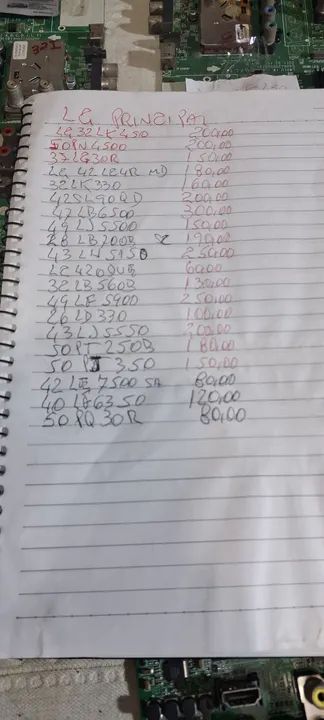 LG PRINCIPAL
LG 32LK450 200,00
50PN4500 200,00
37LG30R 150,00
LG 42LE4R MD 180,00
32LK330 160,00
42SL90QD 200,00
47LB6500 300,00
49LJ5500 150,00
28LB700B 190,00
43LW5150 250,00
LG 420QUB 60,00
32LB560B 130,00
49LF5900 250,00
26LD330 100,00
43LJ5550 200,00
50PT250B 180,00
50PJ350 150,00
42LE7500 SA 80,00
40LG6350 120,00
50PQ30R 80,00